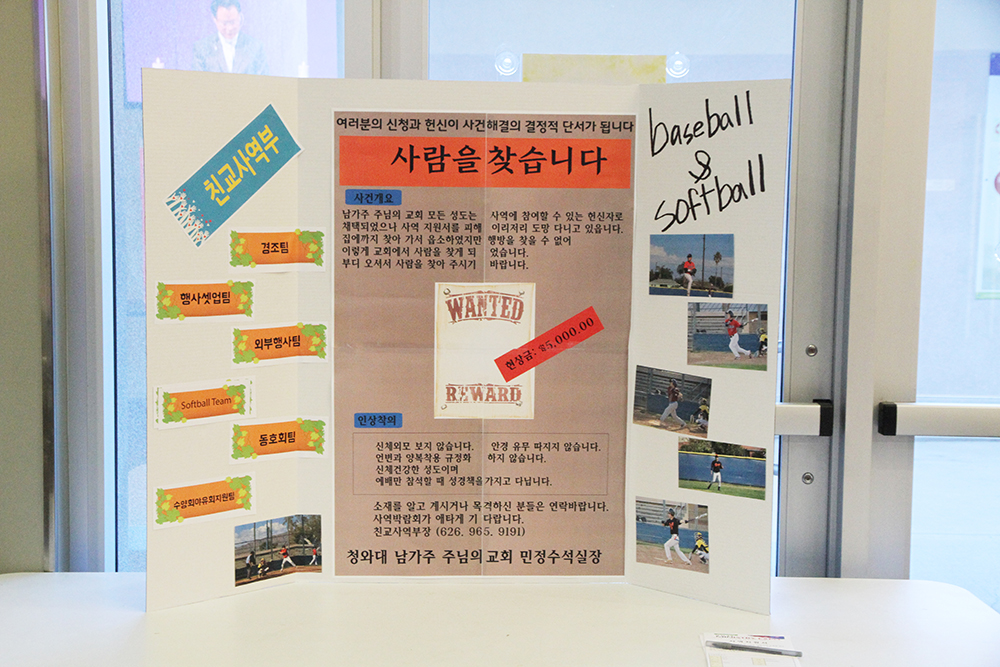 친교사역부
경조팀
행사셋업팀
외부행사팀
Softball Team
동호회팀
수양회야유회지원팀
여러분의 신청과 헌신이 사건해결의 결정적 단서가 됩니다
사람을 찾습니다
사건개요
남가주 주님의 교회 모든 성도는 사역에 참여할 수 있는 헌신자로
채택되었으나 사역 지원서를 피해 이리저리 도망 다니고 있읍니다.
집에까지 찾아 가서 읍소하였지만 행방을 찾을 수 없어
이렇게 교회에서 사람을 찾게 되 었습니다.
부디 오셔서 사람을 찾아 주시기 바랍니다.
WANTED
현상금: ₩5,000.00
REWARD
인상착의
신체외모 보지 않습니다. 안경 유무 따지지 않습니다.
언변과 양복착용 규정화 하지 않습니다.
신체건강한 성도이며
예배만 참석할 때 성경책을가지고 다닙니다.
소재를 알고 계시거나 목격하신 분들은 연락바랍니다.
사역박람회가 애타게 기 다랍니다.
친교사역부장 (626. 965. 9191)
청와대 남가주 주님의교회 민정수석실장
baseball
&
softball